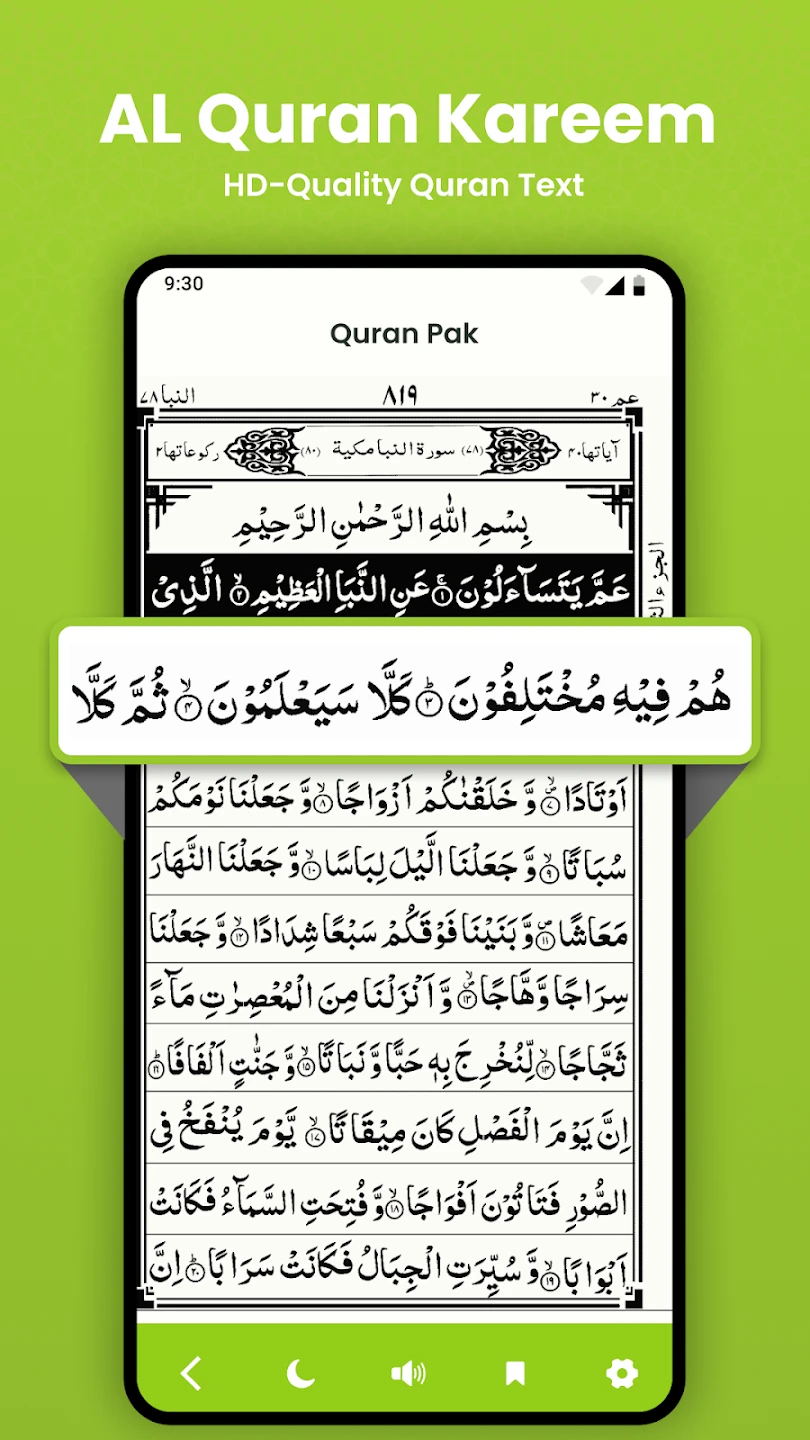 AL Quran Kareem
HD-Quality Quran Text
9:30
Quran Pak
عم ٣٠ ٨١٩ النبا ٧٨
آیاتها ٤٠ (٧٨) سورة النبا مكية (٨٠) ركوعاتها ٢
بِسْمِ اللّٰهِ الرَّحْمٰنِ الرَّحِيْمِ
عَمَّ يَتَسَآءَلُوْنَ ۝١ عَنِ النَّبَاِ الْعَظِيْمِ ۝٢ الَّذِىْ
هُمْ فِيْهِ مُخْتَلِفُوْنَ ۝٣ كَلَّا سَيَعْلَمُوْنَ ۝٤ ثُمَّ كَلَّا
اَوْتَادًا ۝٧ وَّ خَلَقْنٰكُمْ اَزْوَاجًا ۝٨ وَّ جَعَلْنَا نَوْمَكُمْ
سُبَاتًا ۝٩ وَّ جَعَلْنَا الَّيْلَ لِبَاسًا ۝١٠ وَّ جَعَلْنَا النَّهَارَ
مَعَاشًا ۝١١ وَّ بَنَيْنَا فَوْقَكُمْ سَبْعًا شِدَادًا ۝١٢ وَّ جَعَلْنَا
سِرَاجًا وَّهَّاجًا ۝١٣ وَّ اَنْزَلْنَا مِنَ الْمُعْصِرٰتِ مَآءً
ثَجَّاجًا ۝١٤ لِّنُخْرِجَ بِهٖ حَبًّا وَّ نَبَاتًا ۝١٥ وَّ جَنّٰتٍ اَلْفَافًا ۝١٦
اِنَّ يَوْمَ الْفَصْلِ كَانَ مِيْقَاتًا ۝١٧ يَّوْمَ يُنْفَخُ فِى
الصُّوْرِ فَتَاْتُوْنَ اَفْوَاجًا ۝١٨ وَّ فُتِحَتِ السَّمَآءُ فَكَانَتْ
اَبْوَابًا ۝١٩ وَّ سُيِّرَتِ الْجِبَالُ فَكَانَتْ سَرَابًا ۝٢٠ اِنَّ